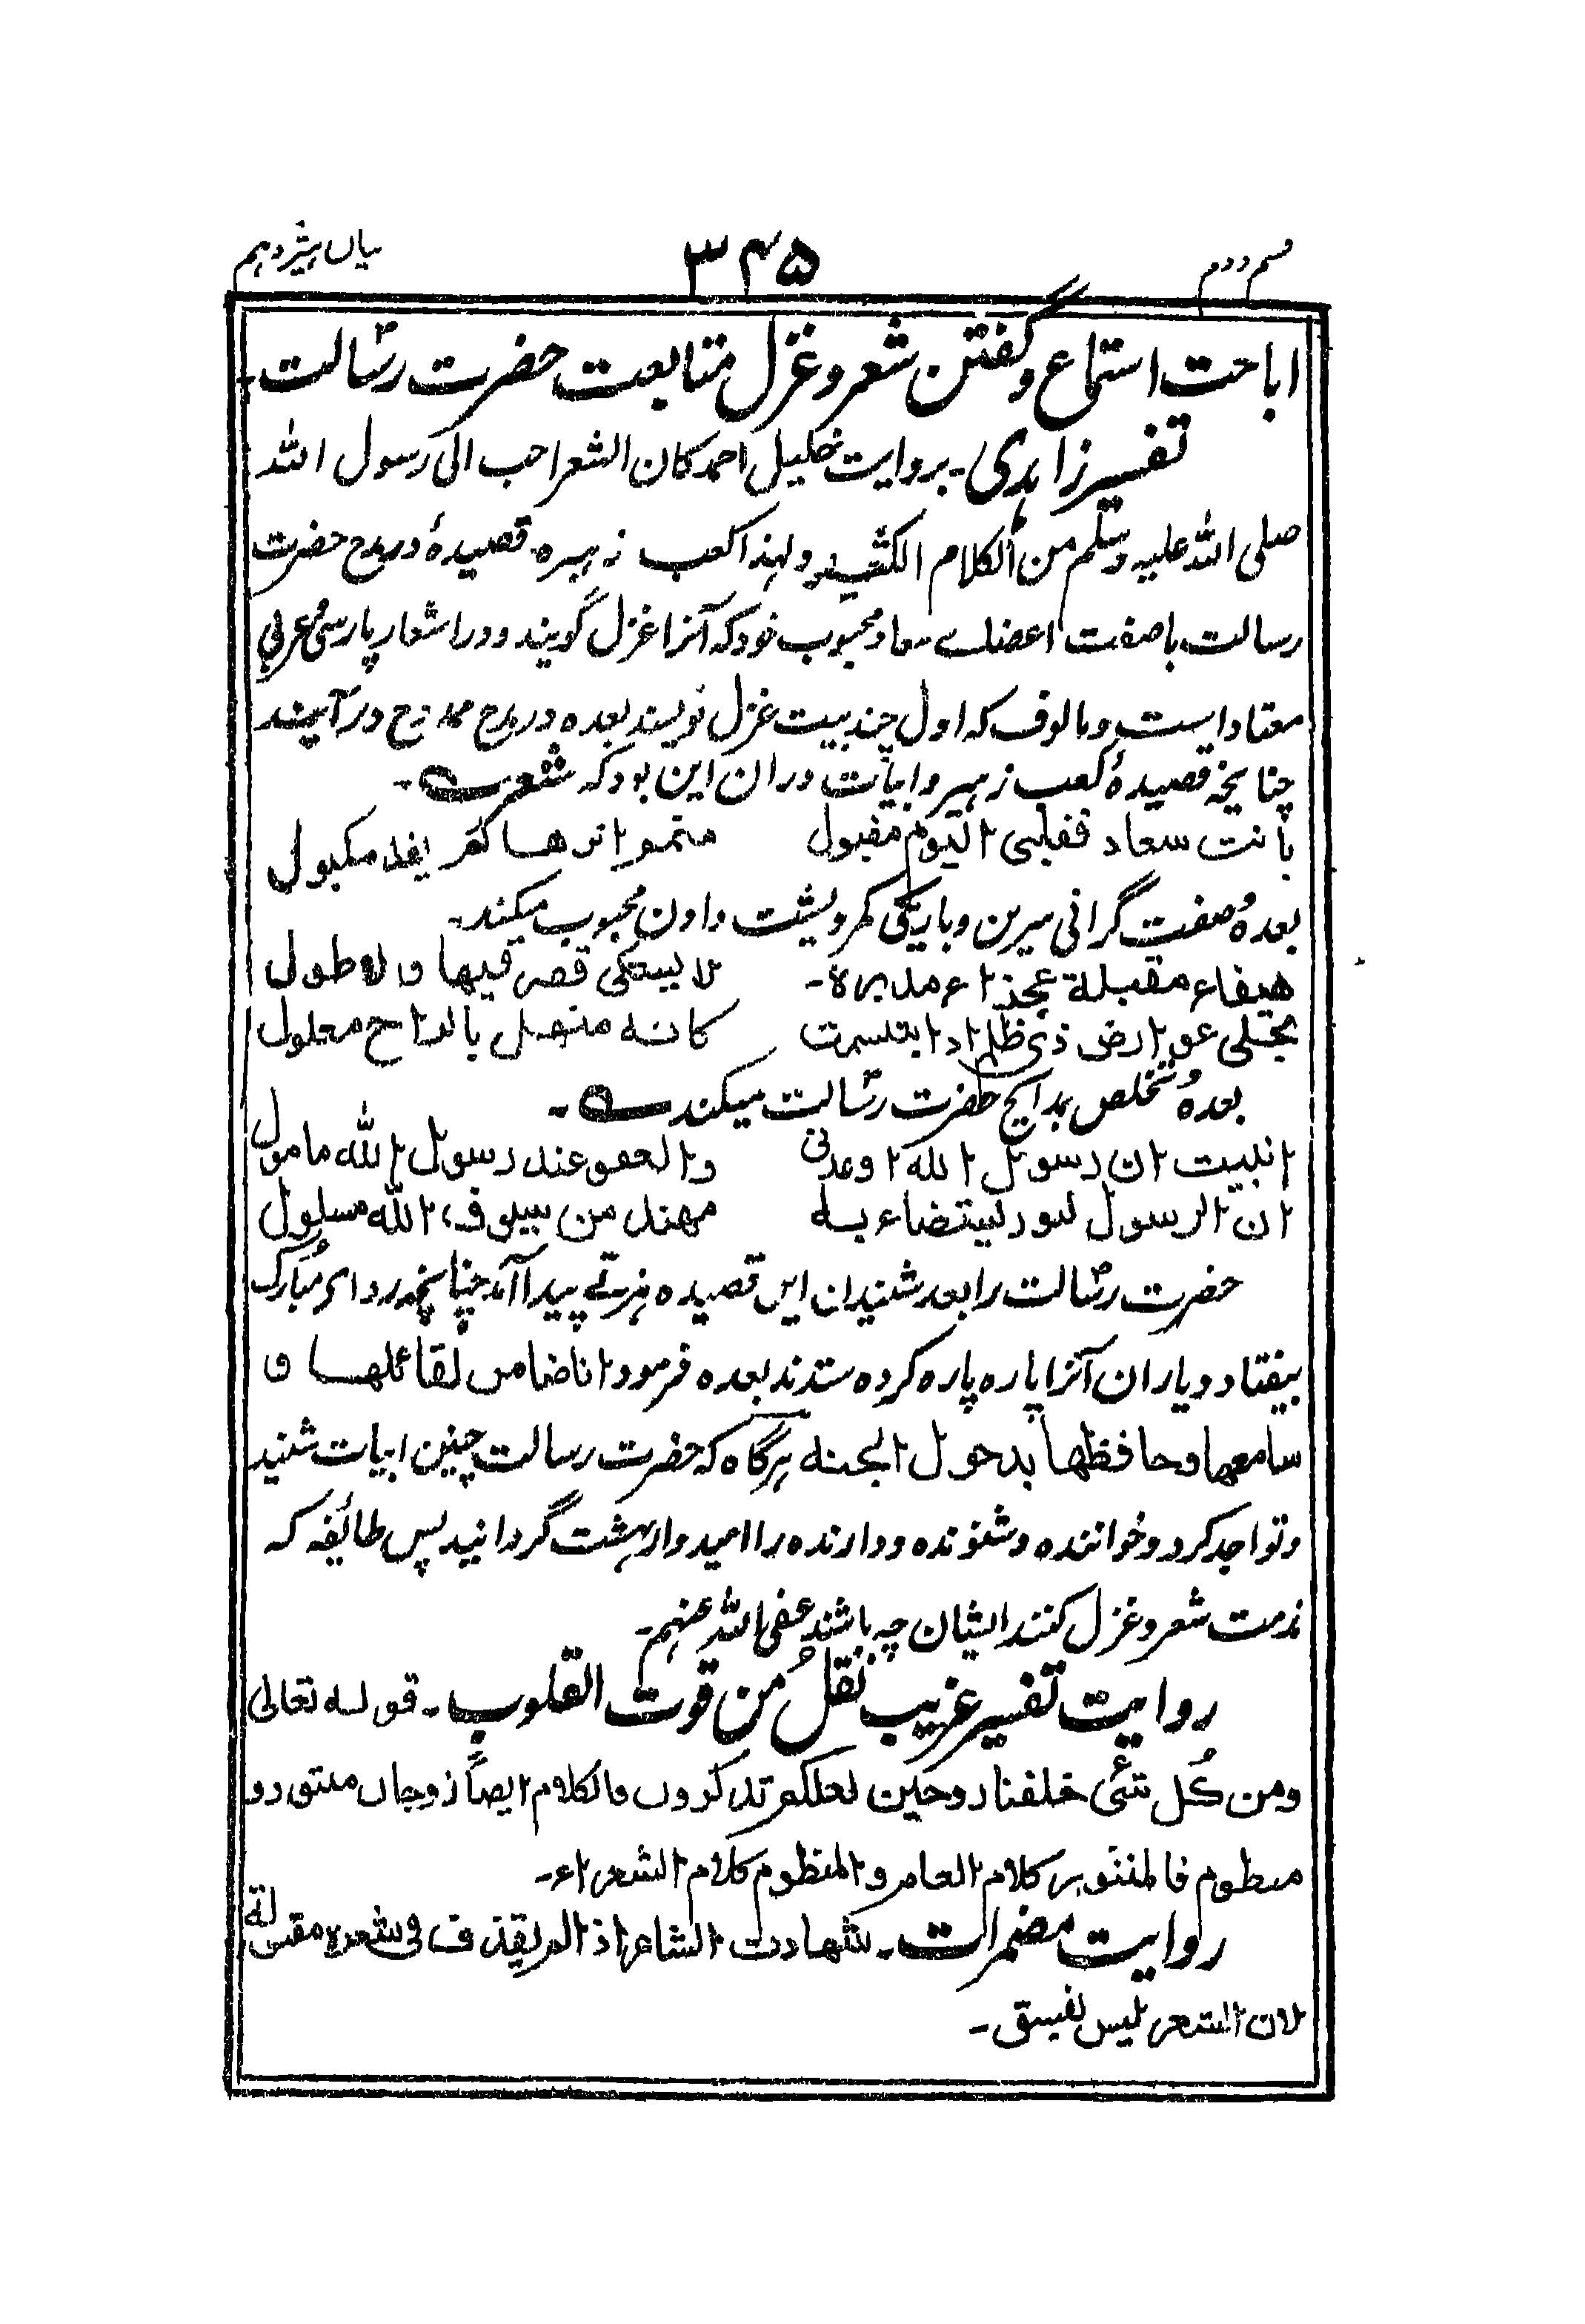 قسم دوم ۳۴۵ بیاں ہیژدہم
اباحت استماع و گفتن شعر و غزل متابعت حضرت رسالت
تفسیر زاہدی۔ بروایت خلیل احمد کان الشعر احب الی رسول اللہ
صلی اللہ علیہ وسلم من الکلام الکثیر و لہذا کعب زہیرہ قصیدۂ در مدح حضرت
رسالت باصفت اعضاے سعاد محبوب خود کہ آنرا غزل گویند و در اشعار پارسی عربی
معتاد است و مالوف کہ اول چند بیت غزل نویسند بعدہ در مدح ممدوح در آیند
چنانچہ قصیدۂ کعب زہیر و ابیات دران این بود کہ شعر۔
بانت سعاد فقلبی الیوم مقبول متمم اثرها لم یفد مکبول
بعدہٗ صفت گرانی سرین و باریکی کمر و پشت دادن محبوب میکند۔
هیفاء مقبلة عجزاء مدبرة۔ لا یشتکی قصر فیها ولا طول
تجلی عوارض ذی ظلم اذا ابتسمت کانه منهل بالراح معلول
بعدہٗ تخلص بمدایح حضرت رسالت میکند۔
انبیت ان رسول الله اوعدنی والعفو عند رسول الله مامول
ان الرسول لنور لیستضاء به مهند من سیوف الله مسلول
حضرت رسالت را بعد شنیدن ایں قصیدہ ہزتے پیدا آمد چنانچہ رداے مبارک
بیفتاد و یاران آنرا پارہ پارہ کردہ ستدند بعدہ فرمود انا ضامن لقائلها و
سامعها و حافظها بدخول الجنه ہرگاہ کہ حضرت رسالت چنین ابیات شنید
و تواجد کرد و خوانندہ و شنوندہ و دارندہ را امیدوار بہشت گردانید پس طائفہ کہ
مذمت شعر و غزل کنند ایشان چہ باشند عفی اللہ عنہم۔
روایت تفسیر غریب نقل من قوت القلوب۔ قوله تعالی
ومن کُل شئی خلقنا زوجین لعلکم تذکرون فالکلام ایضاً زوجان منثور و
منظوم فالمنثور کلام العامہ و المنظوم کلام الشعراء۔
روایت مضمرات۔ شهادت الشاعر اذا لم یقذف فی شعره مقبولة
لان الشعر لیس لفسق۔